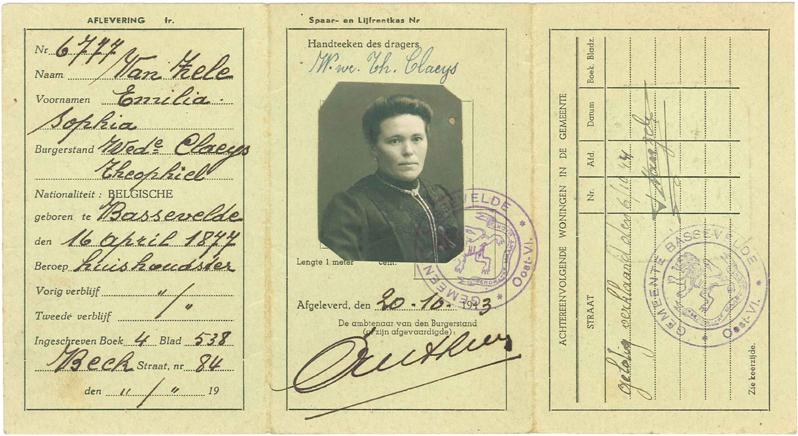 AFLEVERING fr.
Nr 6777
Naam Van Hele
Voornamen Emilia
Sophia
Burgerstand Wede Claeys
Theophiel
Nationaliteit: BELGISCHE
geboren te Bassevelde
den 16 april 1877
Beroep huishoudster
Vorig verblijf "/"
Tweede verblijf "/"
Ingeschreven Boek 4 Blad 538
Beck Straat, nr 84
den "/" 19
Spaar- en Lijfrentkas Nr
Handteeken des dragers
Wwe. Th. Claeys
Lengte 1 meter cent.
GEMEENTE BASSEVELDE * Oost-Vl. *
Afgeleverd, den 20-10-1943
De ambtenaar van den Burgerstand
(of zijn afgevaardigde):
ACHTEREENVOLGENDE WONINGEN IN DE GEMEENTE
STRAAT
Nr.
Afd.
Datum
Boek. Bladz.
geldig verklaard den 6/10 44
GEMEENTE BASSEVELDE * Oost-Vl. *
Zie keerzijde.